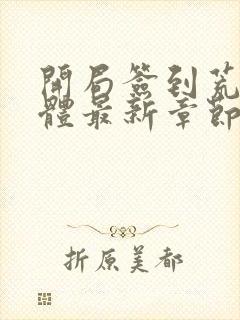 開局簽到荒
體最新章節
折原美都